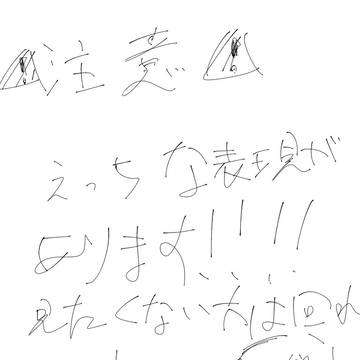 ⚠注意⚠
えっちな表現が
あります!!!!
見たくない方は回れ